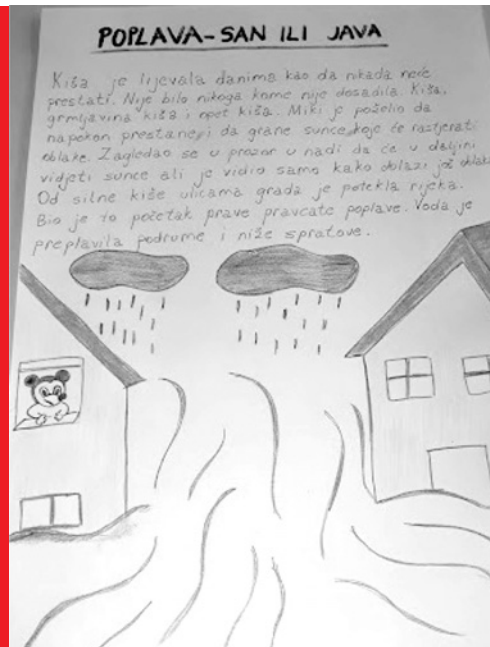 POPLAVA-SAN ILI JAVA
Kiša je lijevala danima kao da nikada neće
prestati. Nije bilo nikoga kome nije dosadila. Kiša,
grmljavina kiša i opet kiša. Miki je poželio da
napokon prestane i da grane sunce koje će rastjerati
oblake. Zagledao se u prozor u nadi da će u daljini
vidjeti sunce ali je vidio samo kako dolazi još oblaka
Od silne kiše ulicama grada je potekla rijeka.
Bio je to početak prave pravcate poplave. Voda je
preplavila podrume i niže spratove.